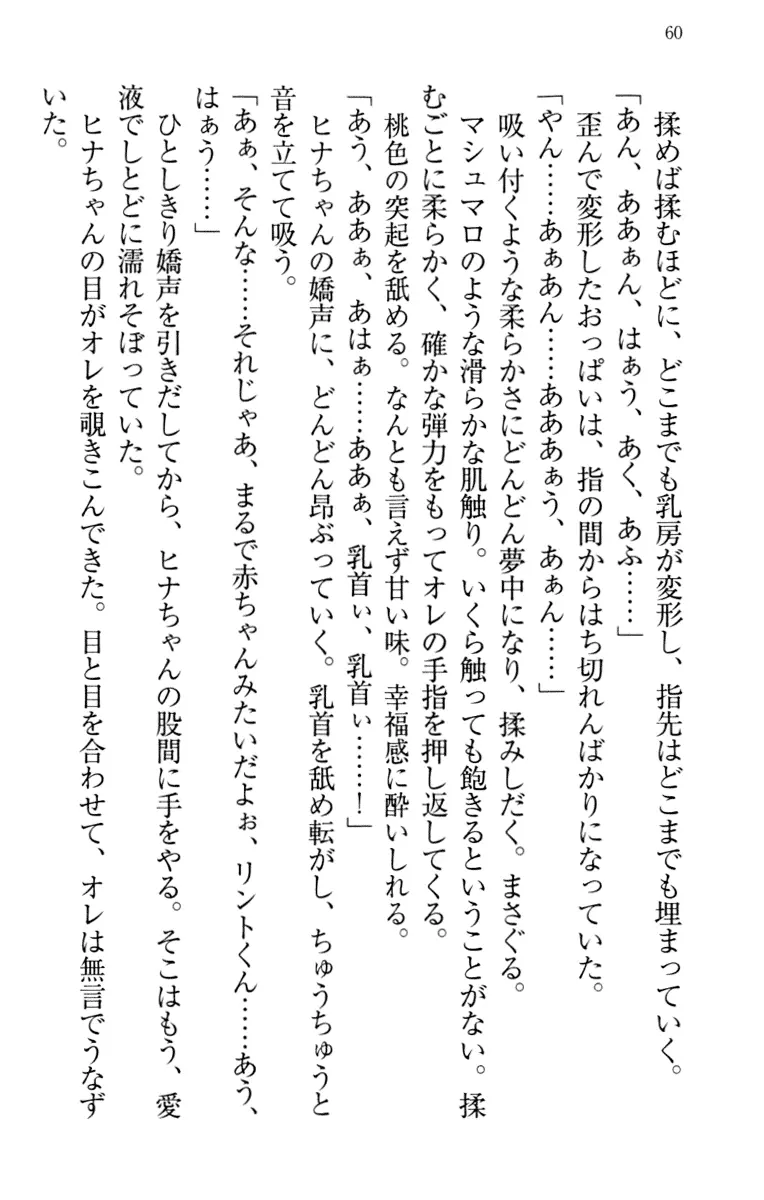 60
揉めば揉むほどに、どこまでも乳房が変形し、指先はどこまでも埋まっていく。
「あん、ああぁん、はぁう、あく、あふ……」
歪んで変形したおっぱいは、指の間からはち切れんばかりになっていた。
「やん……あぁあん……あああぁう、あぁん……」
吸い付くような柔らかさにどんどん夢中になり、揉みしだく。まさぐる。
マシュマロのような滑らかな肌触り。いくら触っても飽きるということがない。揉
むごとに柔らかく、確かな弾力をもってオレの手指を押し返してくる。
桃色の突起を舐める。なんとも言えず甘い味。幸福感に酔いしれる。
「あう、ああぁ、あはぁ……ああぁ、乳首ぃ、乳首ぃ……！」
ヒナちゃんの嬌声に、どんどん昂ぶっていく。乳首を舐め転がし、ちゅうちゅうと
音を立てて吸う。
「あぁ、そんな……それじゃあ、まるで赤ちゃんみたいだよぉ、リントくん……あう、
はぁう……」
ひとしきり嬌声を引きだしてから、ヒナちゃんの股間に手をやる。そこはもう、愛
液でしとどに濡れそぼっていた。
ヒナちゃんの目がオレを覗きこんできた。目と目を合わせて、オレは無言でうなず
いた。